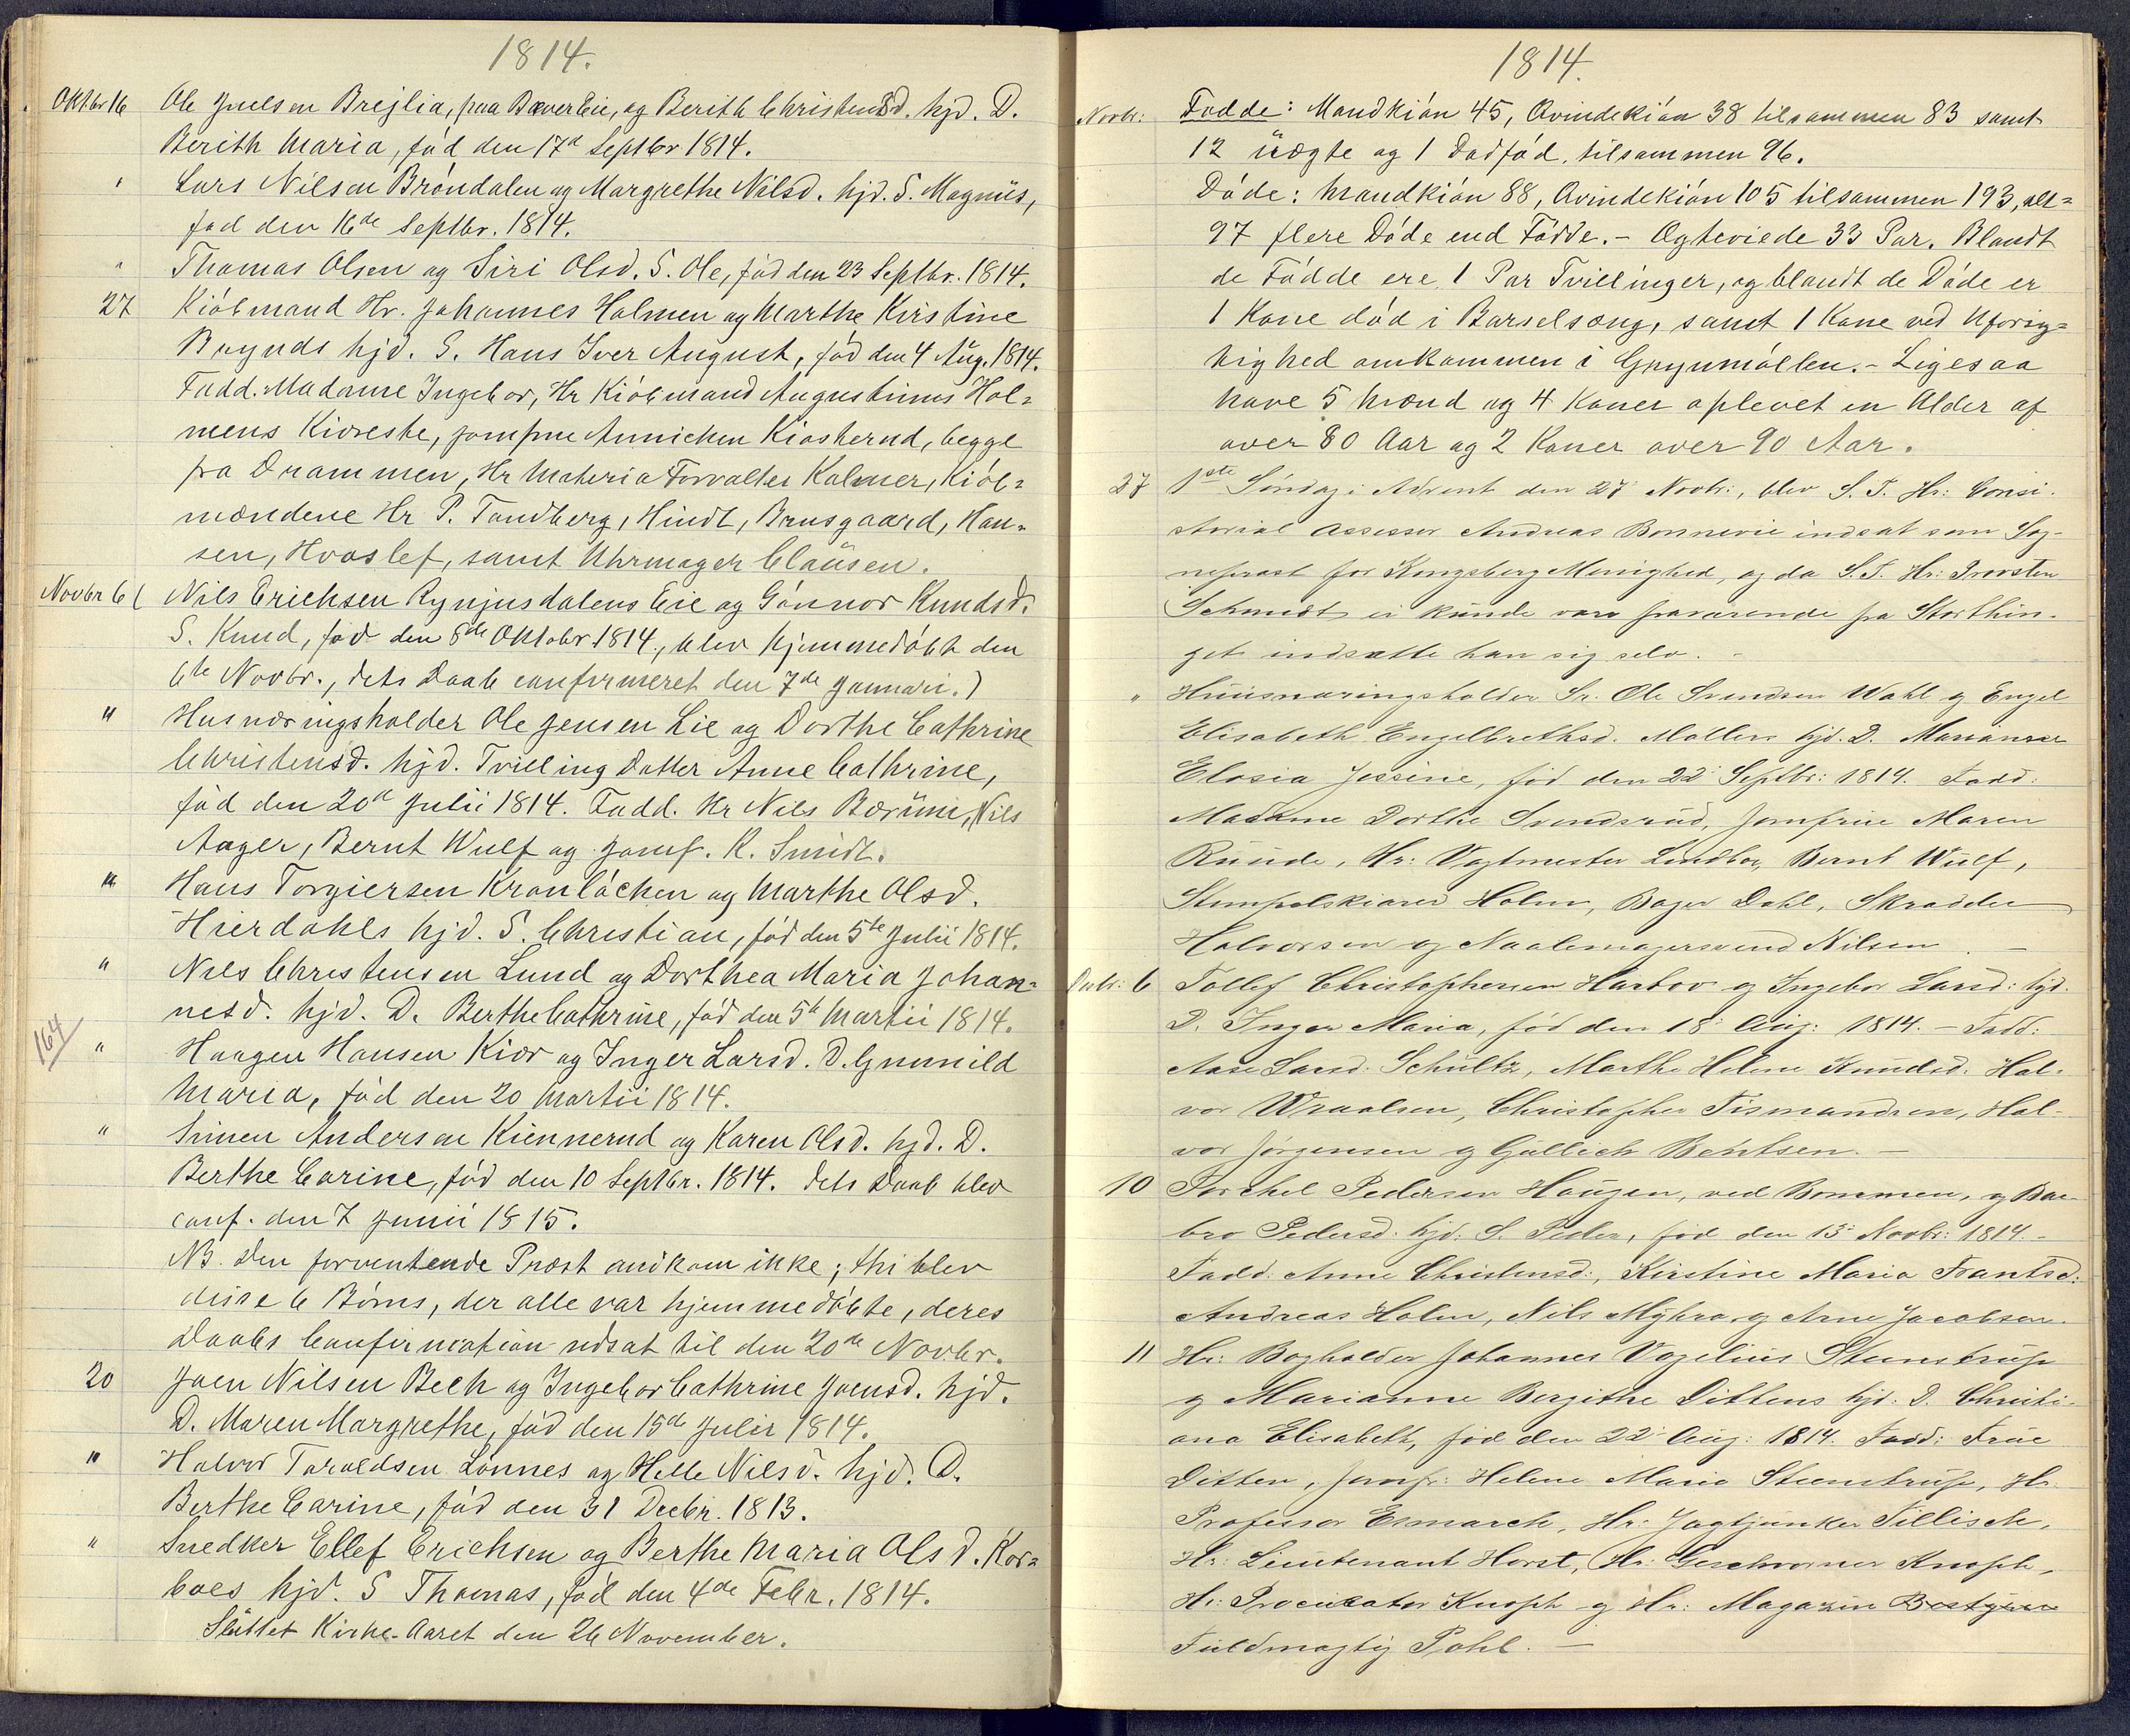 1814.
Oktbr 16 Ole Juelsen Brejlia, paa Bæver Eie, og Berith Christensd. hjd. D.
Berith Maria, fød den 17d Septbr 1814.
" Lars Nilsen Brøndalen og Margrethe Nilsd. hjd. S. Magnüs,
fød den 16de Septbr. 1814.
" Thomas Olsen og Siri Olsd. S. Ole, fød den 23 Septbr. 1814.
27 Kiøbmand Hr. Johannes Holmen og Marthe Kirstine
Brynds hjd. S. Hans Iver August, fød den 4 Aug. 1814.
Fadd. Madame Ingebor, Hr Kiøbmand Augustinus Hol=
mens Kiæreste, Jomfrue Annichen Kiosterud, begge
fra Drammen, Hr Materia Forvalter Kalmer, Kiøb=
mændene Hr P. Tandberg, Hindt, Brusgaard, Han=
sen, Hvoslef, samt Uhrmager Claüsen.
Novbr 6 ( Nils Erichsen Rynjusdalens Eie og Gønnor Knudsd.
S. Knud, fød den 8de Oktobr 1814, blev hjemmedøbt den
6te Novbr., dets Daab confirmeret den 7de Januari.)
" Husnæringsholder Ole Jensen Lie og Dorthe Cathrine
Christensd. hjd. Tvilling Datter Anne Cathrine,
fød den 20d Julii 1814. Fadd. Hr Nils Bærüm, Nils
Aager, Bernt Wulf og Jomf. K. Smidt.
" Hans Torgiersen Kranløchen og Marthe Olsd.
Hierdahls hjd. S. Christian, fød den 5te Julii 1814.
" Niels Christensen Lund og Dorthea Maria Johan=
nesd. hjd. D. Berthe Cathrine, fød den 5te Martii 1814.
164
" Haagen Hansen Kiær og Inger Larsd. D. Gunnild
Maria, fød den 20 Martii 1814.
" Simen Andersen Kiennerud og Karen Olsd. hjd. D.
Berthe Carine, fød den 10 Septbr. 1814. Dets Daab blev
conf. den 7 Junii 1815.
NB. Den forventende Præst ankom ikke; thi blev
disse 6 Børns, der alle var hjemmedøbte, deres
Daabs Confirmation udsat til den 20de Novbr.
20 Joen Nilsen Bech og Ingebor Cathrine Joensd. hjd.
D. Maren Margrethe, fød den 15de Julii 1814.
" Halvor Taraldsen Lønnes og Helle Nilsd. hjd. D.
Berthe Carine, fød den 31 Decbr. 1813.
" Snedker Ellef Erichsen og Berthe Maria Olsd. Kor=
boes hjd. S Thomas, fød den 4de Febr. 1814.
Slüttet Kirke-Aaret den 26 November.
1814.
Novbr: Fødde: Mandkiøn 45, Qvindekiøn 38 tilsammen 83 samt
12 üægte og 1 Dødfød, tilsammen 96.
Døde: Mandkiøn 88, Qvindekiøn 105 tilsammen 193, alt=
97 flere Døde end Fødde. - Ægteviede 33 Par. Blandt
de Fødde ere 1 Par Tvillinger, og blandt de Døde er
1 Kone død i Barselsæng, samt 1 Kone ved Uforsig=
tighed omkommen i Grynmøllen. - Ligesaa
have 5 Mænd og 4 Koner oplevet en Alder af
over 80 Aar og 2 Koner over 90 Aar.
27 1ste Søndag i Advent den 27 Novbr:, blev S. T. Hr: Consi-
storial Assessor Andreas Bonnevie indsat som Sog-
neprost for Kongsberg Menighed, og da S. T. Hr: Provsten
Schmidt ei kunde være fraværende fra Storthin-
get indsatte han sig selv. -
" Huusnæringsholder Sr. Ole Svendsen Wahl og Engel
Elisabeth Engelbrethsd. Møllers hjd. D. Marianne
Elosia Jessine, fød den 22: Septbr: 1814. Fadd:
Madame Dorthe Svendsrud, Jomfrue Maren
Ruude, Hr: Vagtmester Lindboe, Bernt Wulf,
Stempelskiærer Holm, Bager Dahl, Skrædder
Halvorsen og Naalemagersvend Nilsen. -
Decbr: 6 Tollef Christophersen Harbov og Ingebor Larsd: hjd.
D. Inger Maria, fød den 18: Aug: 1814. - Fadd:
Aase Larsd. Schultz, Marthe Helene Knudsd. Hal-
vor Wraalsen, Christopher Tismandsen, Hal-
vor Jørgensen og Gullich Bentsen. -
10 Torchel Pedersen Haugen, ved Bommen, og Bar-
bro Pedersd. hjd: S. Peder, fød den 13: Novbr: 1814. -
Fadd. Anne Christensd:, Kirstine Maria Frantsd:
Andreas Holm, Nils Myhra og Arne Jacobsen.
11 Hr: Bogholder Johannes Vogelius Steenstrup
og Marianne Bergithe Dittens hjd: D. Christi-
ana Elisabeth, fød den 22: Aug: 1814. Fadd: Frue
Ditten, Jomfr: Helene Marie Steenstrup, Hr.
Professor Esmarch, Hr: Jagtjunker Tillisch,
Hr: Lieutenant Horst, Hr: Geschworner Knoph,
Hr: Procurator Knoph og Hr: Magazin Bestyrer
Fuldmægtig Pohl. -